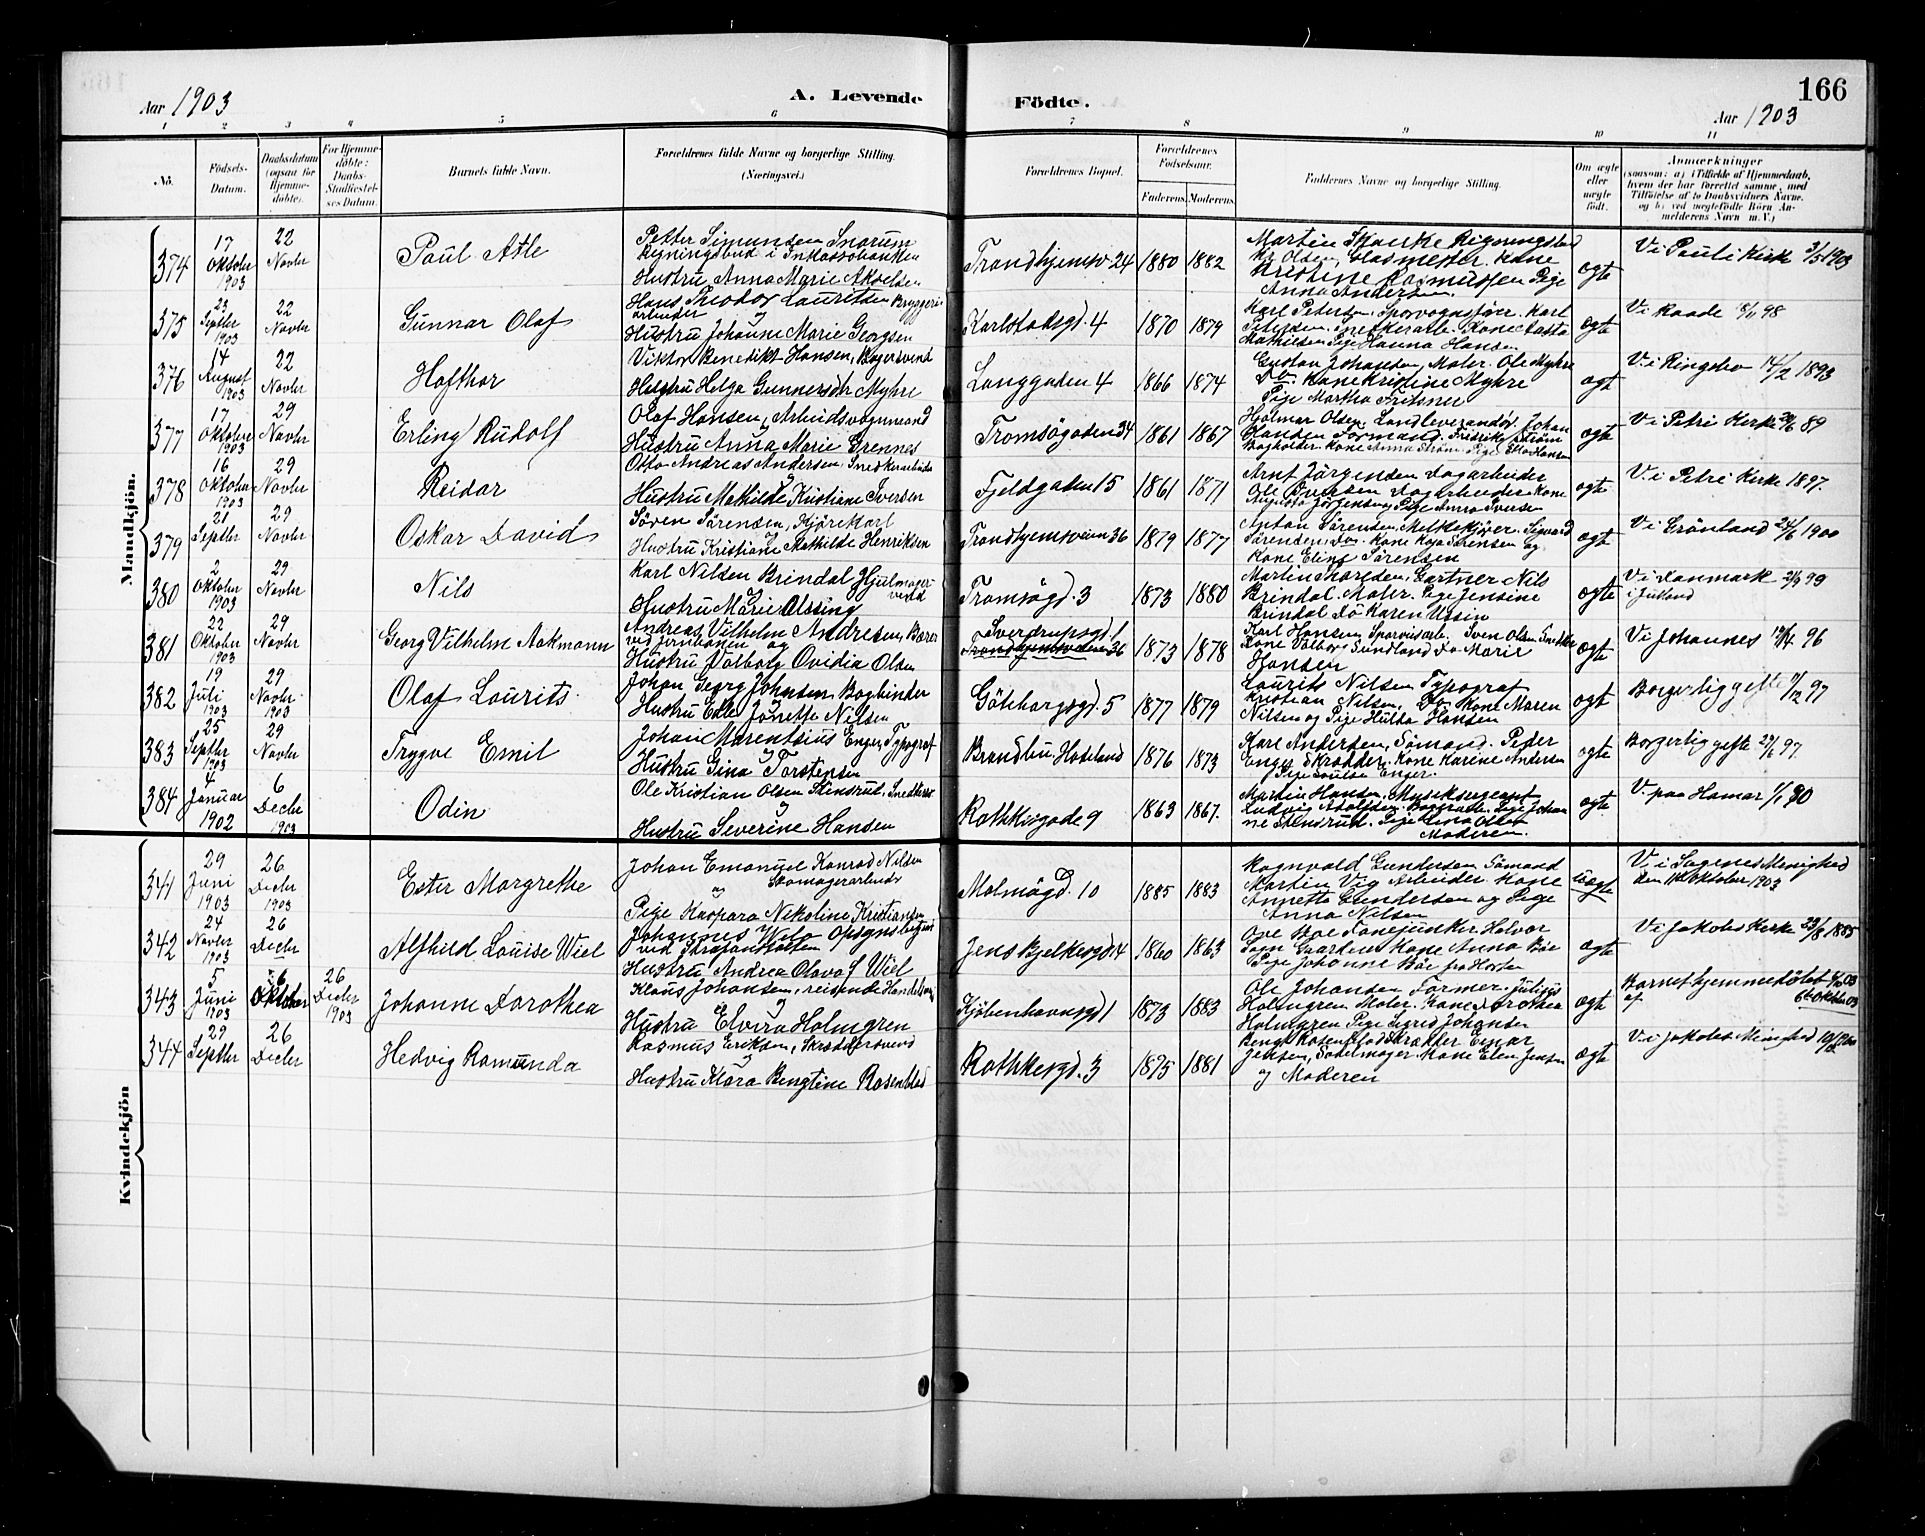 166
Aar 1903
A. Levende
Födte.
Aar 1903
1 2 3 4 5 6 7 8 9 10 11
No.
Födsels-
Datum.
Daabsdatum
(ogsaa for
Hjemme-
döbte).
For Hjemme-
döbte:
Daabs-
Stadfæstel-
ses Datum.
Barnets fulde Navn.
Forældrenes fulde Navne og borgerlige Stilling.
(Næringsvei.)
Forældrenes Bopæl.
Forældrenes
Födselsaar.
Faderens. Moderens.
Faddernes Navne og borgerlige Stilling.
Om ægte
eller
uægte
födt.
Anmærkninger
(saasom: a) i Tilfælde af Hjemmedaab,
hvem der har forrettet samme, med
Tilföielse af to Daabsvidners Navne,
og b) ved uægtefödte Börn An-
melderens Navn m. V.)
Mandkjön.
374
17
Oktober
1903
22
Novbr
Paul Atle
Petter Simunden Snarum
Regningsbud i Inkassobanken
Hustru Anna Marie Akselsen
Trondhjemsv 24
1880
1882
Martin Skanke Regningsbud
Olsen, Glasmester. Kone
Kristine Rasmussen Pige
Anna Andersen.
ægte
Vi Pauli Kirk 3/5 1903
375
23
Septbr
1903
22
Novbr
Gunnar Olaf
Hans Theodor Lauritsen Bryggeri-
arbeider og
Hustru Johanne Marie Georgsen
Karlstadsgd. 4
1870
1879
Karl Petersen, Sporvognsfører. Karl
Petersen. Snekkerarb. Kone
Mathiesen Pige Hanna Hansen
ægte
Vi Raade 98
376
14
August
1903
22
Novbr
Hafthor
Viktor Benedikt Hansen, Bagersvend
Hustru Helga Gunnersdtr Myhre
Langgaden 4
1866
1874
Gustav Johansen, Maler. Ole Myhre
Do. Kone Kristine Myhre
Pige Martha Fritsner
ægt
Vi Ringebo 14/2 1893
377
17
Oktober
1903
29
Novbr
Erling Rudolf
Olaf Hansen, Arbeidsvognmand
Hustru Anna Marie Grennes
Tromsögaden 34
1861
1867
Hjalmar Olsen Landleverandør. Johan
Formand. Fridrik Strøm
Bogholder. Kone Anna Strøm. Pige Hansen
ægte
Vi Petri Kirke 89
378
16
Oktober
1903
29
Novbr
Reidar
Otto Andreas Andersen, Snedkerarbeider
Hustru Mathilde Kristine Iversen
Fjeldgaden 15
1861
1871
Arnt Jörgensen Dagarbeider
Ole Iversen Dagarbeider Kone
Augusta Jörgensen Pige Anna Iversen
ægte
Vi Petri Kirke 1897.
379
21
Septbr
29
Novbr
Oskar David
Sören Sörensen, Kjörekarl
Hustru Kristiane Mathilde Henriksen
Trondhjemsveien 36
1879
1877
Anton Sörensen, Melkekjører. Sigvard
Sörensen, Do. Kone Kaja Sörensen og
Kone Eline Sörensen
ægte
Vi Grönland 24/6 1900
380
2
Oktober
1903
29
Novbr
Nils
Karl Nilsen Brindal Hjulmager-
svend
Hustru Marie Ussing
Tromsögd. 3
1873
1880
Gartner Nils
Brindal. Maler. Pige Jensine
Brindal Do Karen Ussin
ægte
Vi Danmark 99
i Jutland
381
22
Oktober
1903
29
Novbr
Georg Vilhelm Aakmann
Andreas Vilhelm Andresen, Bærer
ved Jernbanen og
Hustru Valborg Ovidia Olsen
Sverdrupsgd. 1
Trondhjemsveien 36
1873
1878
Karl Hansen, Sporvisarb. Sven Olsen Snedker
Kone Valborg Sundland Do Marie
Hansen
ægte
Vi Johannes 96
382
19
Juli
1903
29
Novbr
1903
Olaf Laurits
Johan Georg Johnsen Bogbinder
Hustru Edle Janette Nilsen
Göteborgsgd. 5
1877
1879
Laurits Nilsen Typograf
Kristian Nilsen, Do. Kone Maren
Nilsen og Pige Hulda Hansen
ægt
Borgerlig gifte 97
383
25
Septbr
1903
29
Novbr
Trygve Emil
Johan Marentsius Enger, Typograf
Hustru Gina Torstensen
Brandbu Hadeland
1876
1873
Karl Andersen, Sömand. Peder
Enger Skrædder. Kone Karine Andersen
Pige Louise Enger.
ægte
Borgerlig gifte 97.
384
4
Januar
1902
6
Decbr
1903
Odin
Ole Kristian Olsen Stensrud. Snedker
Hustru Severine Hansen
Rathkesgade 9
1863
1867.
Martin Hansen, Musiksergeant
Ludvig Adolfsen. Pige Johan
ne Stensrud. Pige Olsen
Moderen.
ægte
V. paa Hamar 1/1 90
Kvindekjön
341
29
Juni
1903
26
Decbr
1903
Ester Margrethe
Johan Emanuel Konrad Nilsen
og Skomagerarbeider
Pige Kaspara Nikoline Kristiansen
Malmögd. 10
1885
1883
Ragnvald Gundersen Sömand
Martin Vig Arbeider. Kone
Annette Gundersen og Pige
Anna Nilsen
uægte
V i Sagenes Menighed
den Oktober 1903
342
24
Novbr
1903
26
Decbr
Alfhild Louise Wiel
Johannes Wiel Opsynsbetjent
ved Strafanstalten
Hustru Andrea Olava Wiel
Jens Bjelkesgd 4
1860
1863
Ove Boe Halvor
Gaardeier Kone Anna Boe
Pige Johanne Böe fra Horten
ægt
Vi Jakobs Kirke 23/8 1885
343
5
Juni
1903
6
Oktober
26
Decbr
1903
Johanne Dorothea
Klaus Johansen, reisende Handelsm
Hustru Elvira Holmgren
Kjöbenhavngd 1
1873
1883
Ole Johansen Former. Julius
Holmgren Maler. Kone Dorothea
Holmgren Pige Sigrid Johansen
ægt
Barnet hjemmedöbt
af 6 Oktober 03
344
29
Septbr
26
Decbr
Hedvig Ramunda
Rasmus Eriksen, Skræddersvend
Hustru Klara Bengtine Rosenblad
Rathkesgd. 3
1875
1881
Bengt Rosenblad Skrædder Einar
Jensen, Sadelmager. Kone Elen Jensen
og Moderen
ægt
V i Jakobs Menighed